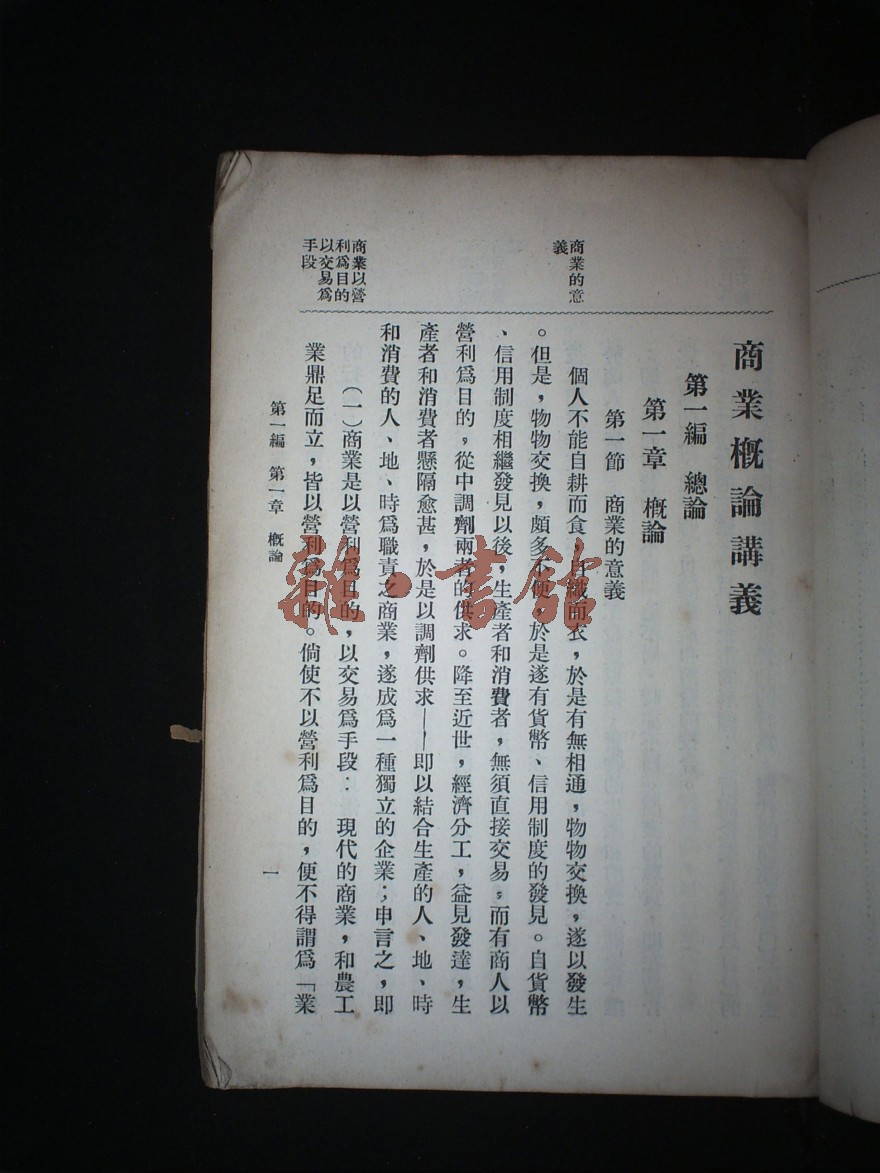 商業概論講義
第一編 總論
第一章 概論
第一節 商業的意義
商業的意
義
個人不能自耕而食，自織而衣，於是有無相通，物物交換，遂以發生
。但是，物物交換，頗多不便，於是遂有貨幣、信用制度的發見。自貨幣
、信用制度相繼發見以後，生產者和消費者，無須直接交易，而有商人以
營利爲目的，從中調劑兩者的供求。降至近世，經濟分工，益見發達，生
產者和消費者懸隔愈甚，於是以調劑供求——即以結合生產的人、地、時
和消費的人、地、時爲職責之商業，遂成爲一種獨立的企業；申言之，即
商業以營
利爲目的
以交易爲
手段
（一）商業是以營利爲目的，以交易爲手段： 現代的商業，和農工
業鼎足而立，皆以營利爲目的。倘使不以營利爲目的，便不得謂爲「業
第一編 第一章 概論
一
雜·書館